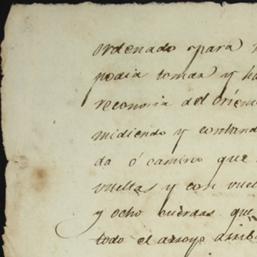 ordenado para
podia tomar y
reconoria del orien
midiendo y contand
da ó camino que
vueltas y con vuel
y ocho cuerdas que
todo el arroyo arrib